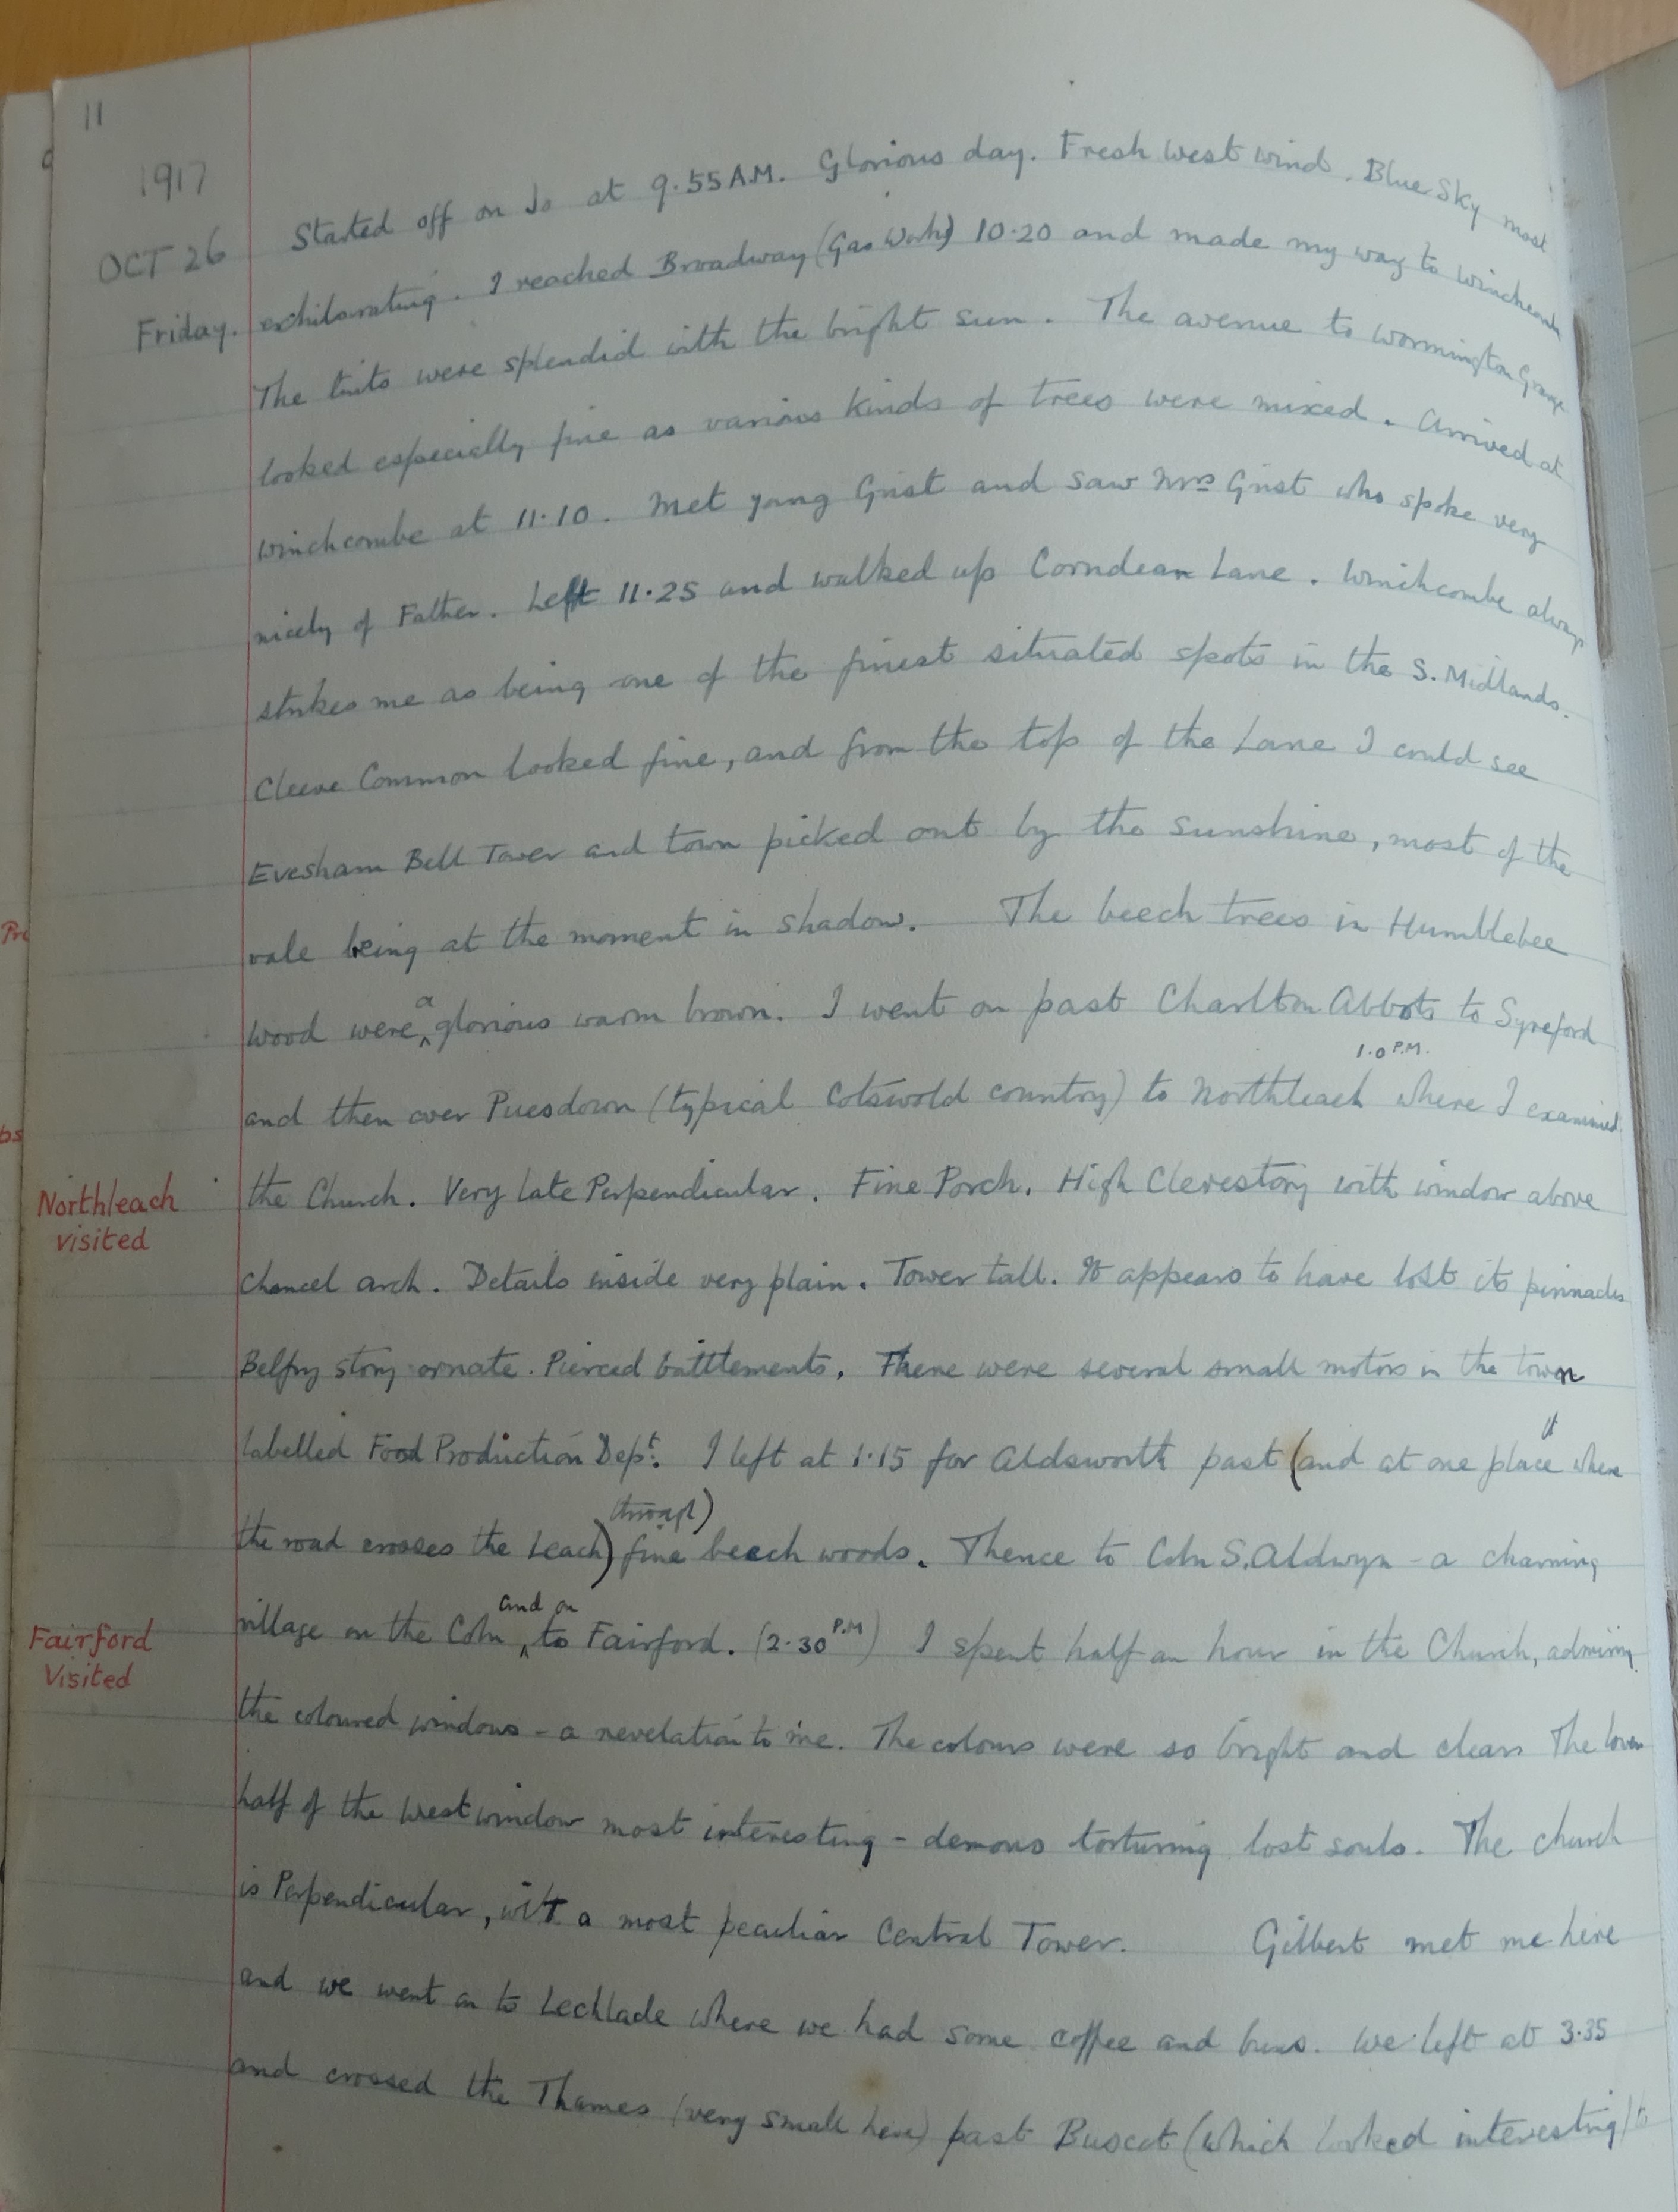 11
1917
OCT 26
Friday.
Started off on Jo at 9.55 A.M. Glorious day. Fresh west wind. Blue Sky most
exhilarating. I reached Broadway (Gas Works) 10.20 and made my way to Winchcombe
The tints were splendid with the bright sun. The avenue to Wormington Grange
looked especially fine as various kinds of trees were mixed. Arrived at
Winchcombe at 11.10. Met young Grist and saw Mrs Grist who spoke very
nicely of Father. Left 11.25 and walked up Corndean Lane. Winchcombe always
strikes me as being one of the finest situated spots in the S. Midlands.
Cleeve Common looked fine, and from the top of the Lane I could see
Evesham Bell Tower and town picked out by the sunshine, most of the
vale being at the moment in shadow. The beech trees in Humblebee
Wood were a glorious warm brown. I went on past Charlton Abbots to Syreford
and then over Puesdown (typical Cotswold country) to Northleach 1.0 P.M. where I examined
Northleach
visited
the Church. Very late Perpendicular. Fine Porch. High Clerestory with window above
chancel arch. Details inside very plain. Tower tall. It appears to have lost its pinnacles
Belfry story ornate. Pierced battlements. There were several small motors in the town
labelled Food Production Dept. I left at 1.15 for Aldsworth past (and at one place where
the road crosses the Leach) through) fine beech woods. Thence to Coln S. Aldwyn - a charming
village on the Coln and on to Fairford. (2.30 P.M) I spent half an hour in the Church, admiring
Fairford
Visited
the coloured windows - a revelation to me. The colours were so bright and clear. The lower
half of the West window most interesting - demons torturing lost souls. The church
is Perpendicular, with a most peculiar Central Tower. Gilbert met me here
and we went on to Lechlade where we had some coffee and buns. We left at 3.35
and crossed the Thames (very small here) past Buscot (which looked interesting) to